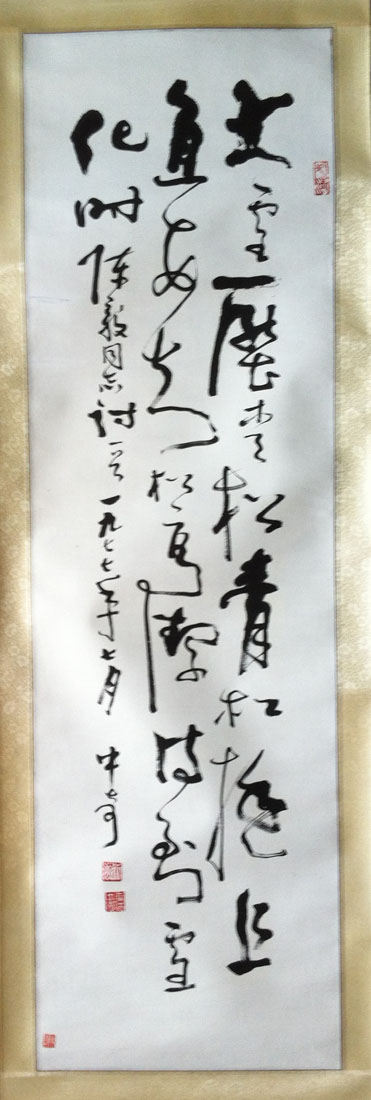 大雪壓青松青松挺且
直要知松高潔待到雪
化時陳毅同志詩一首一九七七年月中奇